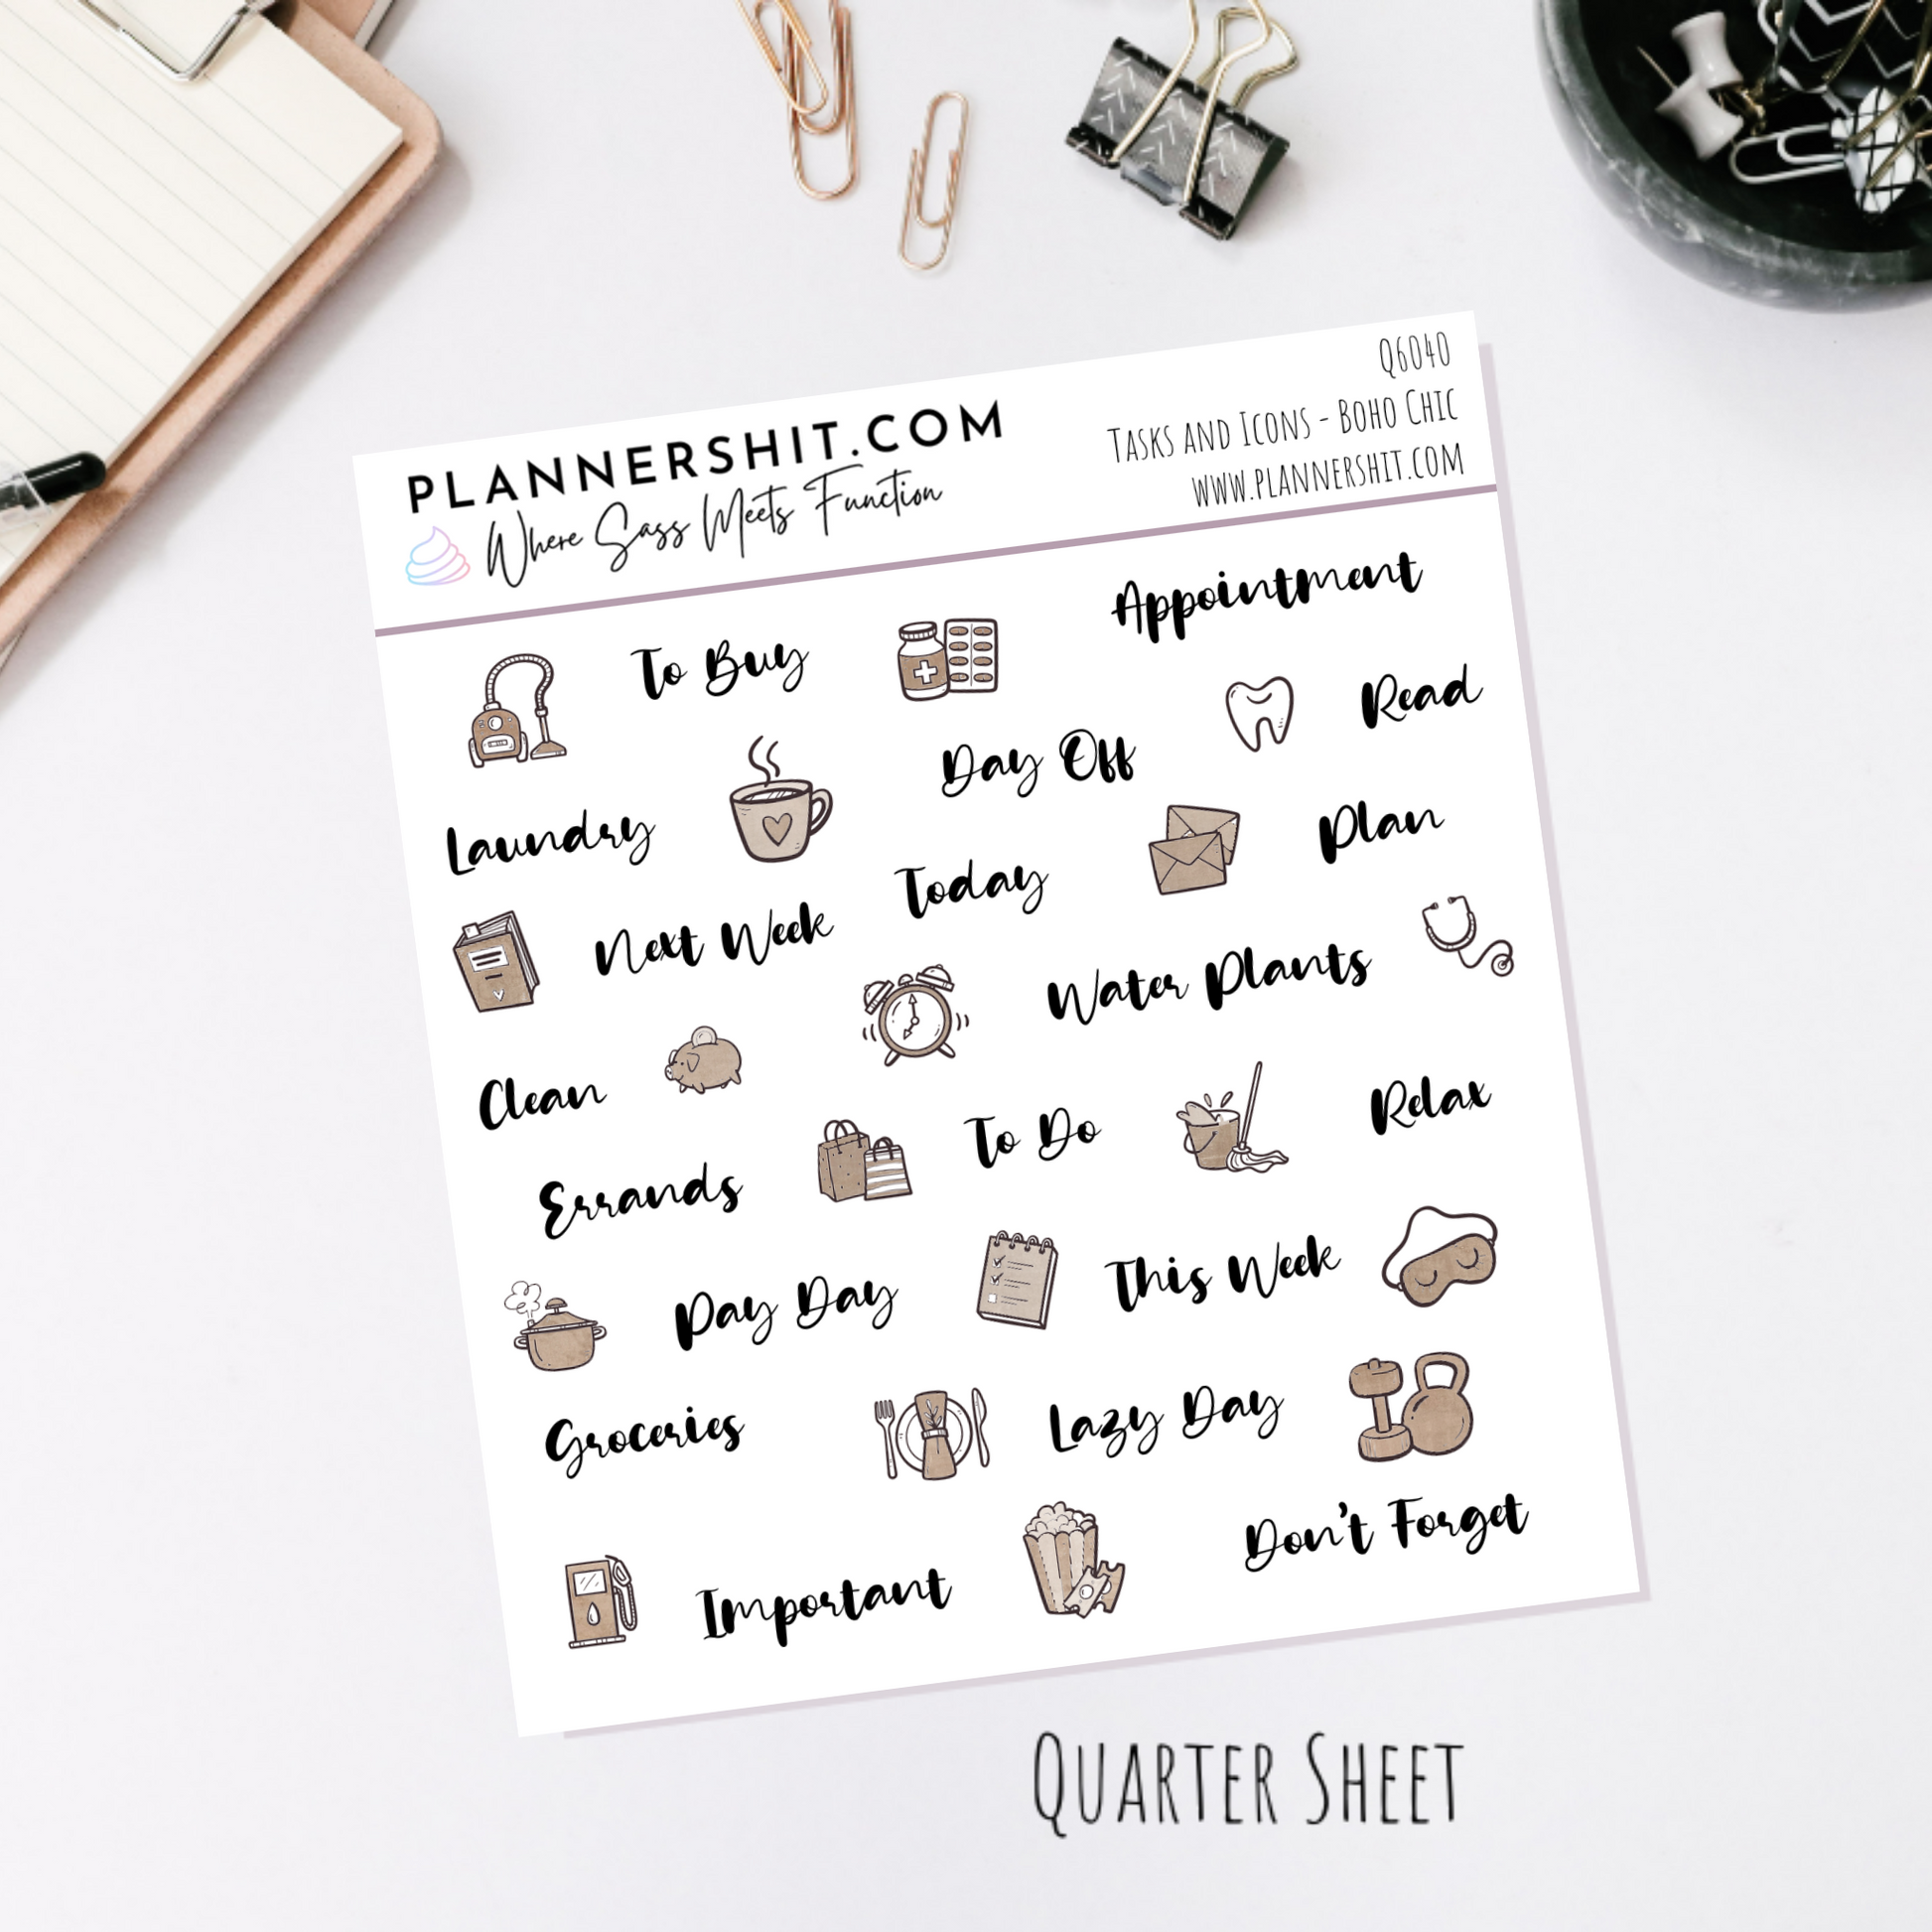 PLANNERSHIT.COM
Where Sass Meets Function
Q6040
Tasks and Icons - Boho Chic
www.plannershit.com
To Buy
Appointment
Read
Laundry
Day Off
Plan
Next Week
Today
Water Plants
Clean
To Do
Relax
Errands
Pay Day
This Week
Groceries
Lazy Day
Important
Don't Forget
Quarter Sheet